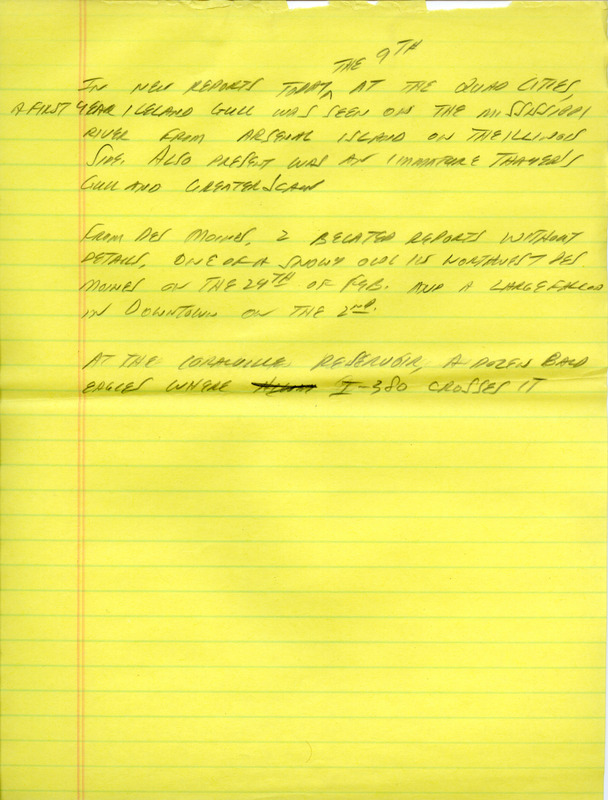 THE 9TH
IN NEW REPORTS TODAY, AT THE QUAD CITIES,
A FIRST YEAR ICELAND GULL WAS SEEN ON THE MISSISSIPPI
RIVER FROM ARSENAL ISLAND ON THE ILLINOIS
SIDE. ALSO PRESENT WAS AN IMMATURE THAYER'S
GULL AND GREATER SCAUP
FROM DES MOINES, 2 BELATED REPORTS WITHOUT
DETAILS, ONE OF A SNOWY OWL IN NORTHWEST DES
MOINES ON THE 29TH OF FEB. AND A LARGE FALCON
IN DOWNTOWN ON THE 2ND.
AT THE CORALVILLE RESERVOIR, A DOZEN BALD
EAGLES WHERE I-380 CROSSES IT